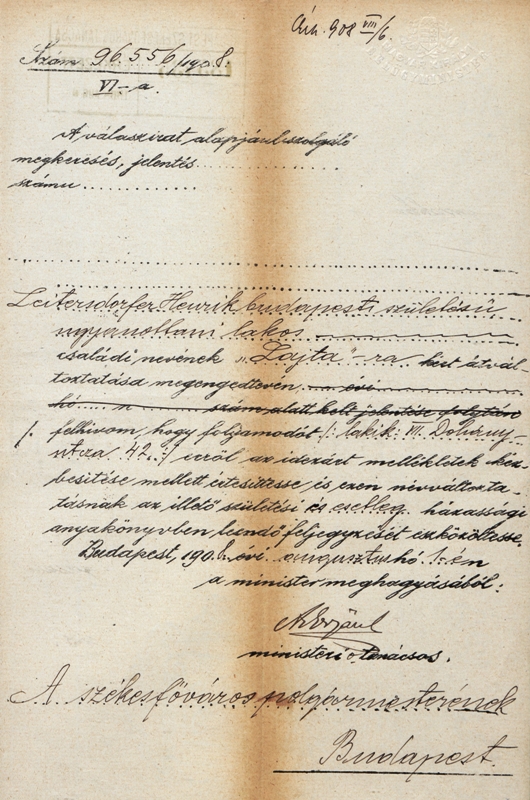 Érk. 908 VIII/6.
Szám 96.556/1908.
VI-a.
A válaszirat alapjául szolgáló
megkeresés, jelentés
száma
Leitersdorfer Henrik budapesti születésű
ugyanottani lakos
családi nevének „Lajta"-ra kért átvál-
toztatása megengedtetvén évi
hó n szám alatt kelt jelentése folytán
/. felhivom, hogy folyamodót /: lakik: VII. Dohány-
utcza 42. :/ erről az idezárt mellékletek kéz-
besitése mellett értesittesse és ezen névváltozta-
tásnak az illető születési és esetleg házassági
anyakönyvben leendő feljegyzését eszközöltesse.
Budapest, 1908. évi augusztus hó 1-én
a minister meghagyásából:
ministeri tanácsos.
A székesfőváros polgármesterének
Budapest.